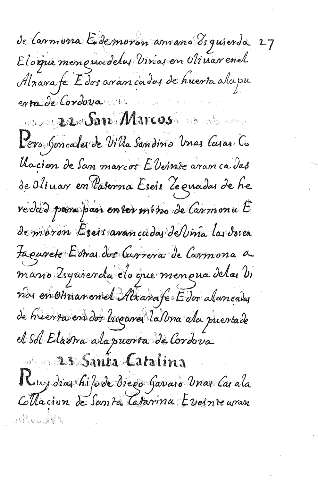 27
de Carmona E de moron a mano Izquierda
Elo que mengua de las Viñas en olivar en el
Alxarafe E dos arançadas de huerta a la pu
erta de Cordova
22 San Marcos
Pero Gonçales de Villa Sandino Unas Casas Co
llacion de San marcos E Veinte arancadas
de Olivar en Paterna E seis Yeguadas de he
redad para pan en termino de Carmona E
de moron E seis arancadas de Viña las dos ca
Tagarete E otras dos Carrera de Carmona a
mano Izquierda elo que mengua de las Vi
ñas en Olivar en el Alxarafe E dos alancadas
de huerta en dos lugares la una a la puerta de
el Sol E la otra a la puerta de Cordova
23 Santa Catalina
Ruy dias hijo de Diego Gavaio Unas Cas a la
Collacion de Santa Catarina E veinte aran